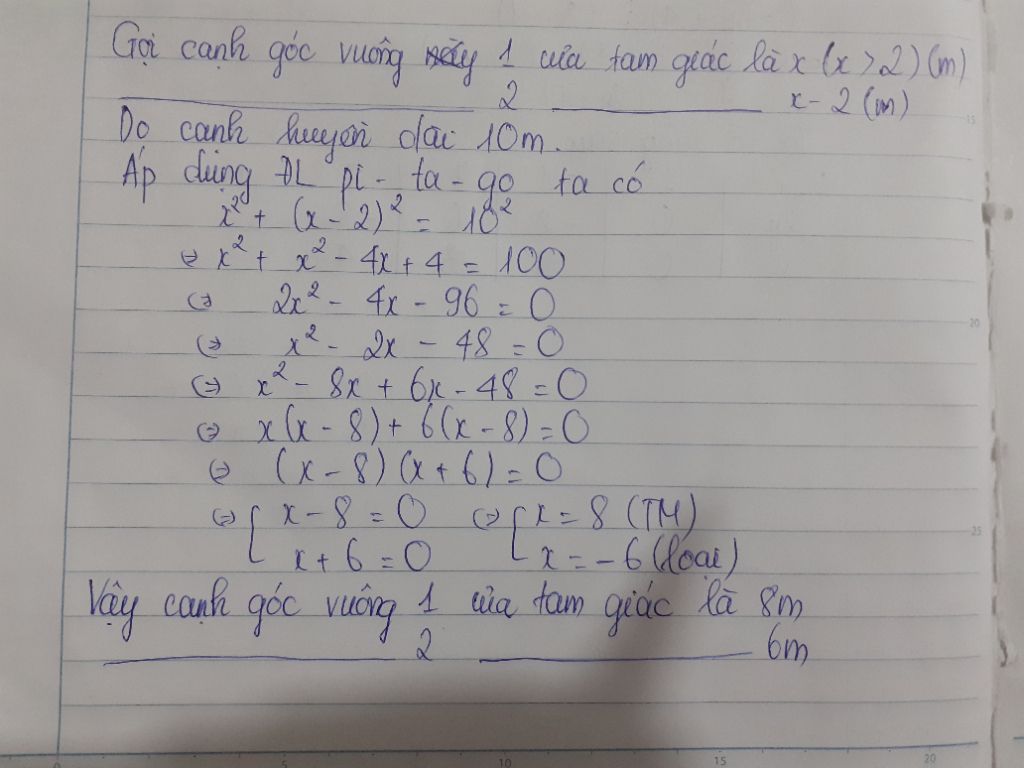 Gọi cạnh góc vuông 1 của tam giác là x (x > 2) (m)
2 x - 2 (m)
Do cạnh huyền dài 10m.
Áp dụng ĐL pi - ta - go ta có
x² + (x - 2)² = 10²
⇔ x² + x² - 4x + 4 = 100
⇔ 2x² - 4x - 96 = 0
⇔ x² - 2x - 48 = 0
⇔ x² - 8x + 6x - 48 = 0
⇔ x(x - 8) + 6(x - 8) = 0
⇔ (x - 8) (x + 6) = 0
⇔ [ x - 8 = 0 ⇔ [ x = 8 (TM)
x + 6 = 0 x = - 6 (loại)
Vậy cạnh góc vuông 1 của tam giác là 8m
2 6m
15
20
25
0 5 10 15 20